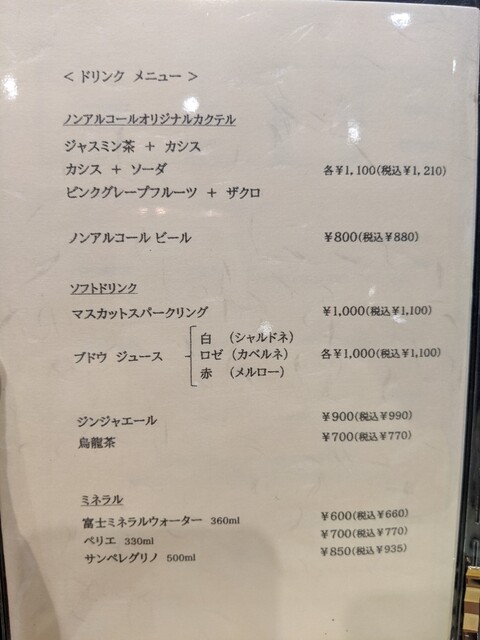 < ドリンク メニュー >
ノンアルコールオリジナルカクテル
ジャスミン茶 + カシス
カシス + ソーダ 各¥1,100(税込¥1,210)
ピンクグレープフルーツ + ザクロ
ノンアルコール ビール ¥800(税込¥880)
ソフトドリンク
マスカットスパークリング ¥1,000(税込¥1,100)
白 (シャルドネ)
ブドウ ジュース ロゼ (カベルネ) 各¥1,000(税込¥1,100)
赤 (メルロー)
ジンジャエール ¥900(税込¥990)
烏龍茶 ¥700(税込¥770)
ミネラル
富士ミネラルウォーター 360ml ¥600(税込¥660)
ペリエ 330ml ¥700(税込¥770)
サンペレグリノ 500ml ¥850(税込¥935)